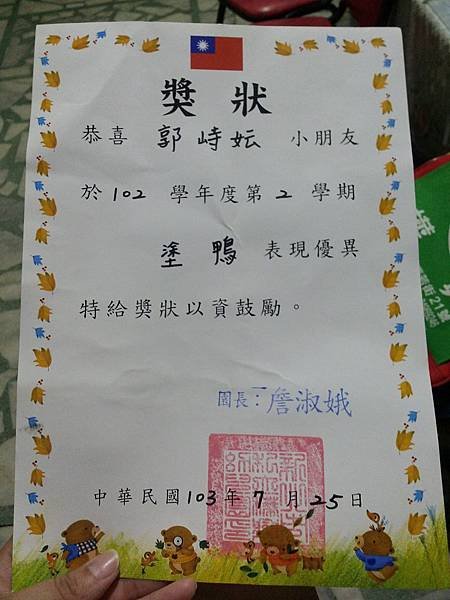 獎狀
恭喜 郭峙妘 小朋友
於102 學年度第 2 學期
塗鴨 表現優異
特給獎狀以資鼓勵。
園長：詹淑娥
中華民國103年7月25日